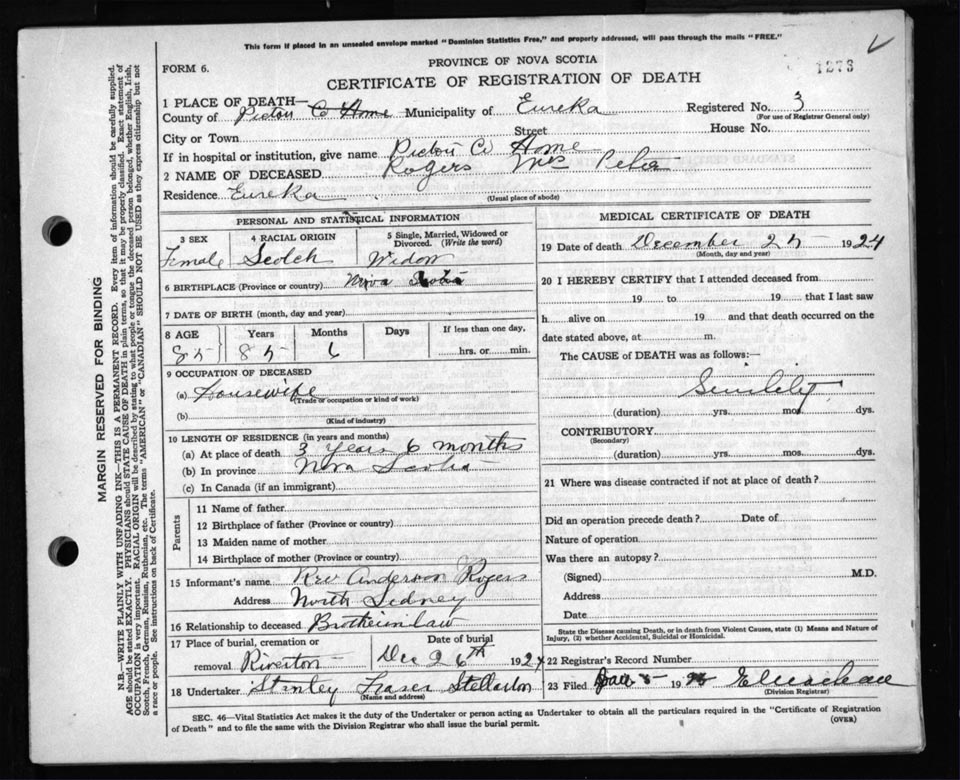 This form if placed in an unsealed envelope marked "Dominion Statistics Free," and properly addressed, will pass through the mails "FREE."
PROVINCE OF NOVA SCOTIA
FORM 6.
1273
CERTIFICATE OF REGISTRATION OF DEATH
1 PLACE OF DEATH—
County of Pictou Co Home Municipality of Eureka Registered No. 3
(For use of Registrar General only)
City or Town Street House No.
If in hospital or institution, give name Pictou Co Home
2 NAME OF DECEASED Rogers Mrs
Residence Eureka (Usual place of abode)
PERSONAL AND STATISTICAL INFORMATION
3 SEX 4 RACIAL ORIGIN 5 Single, Married, Widowed or Divorced. (Write the word)
Female Scotch Widow
6 BIRTHPLACE (Province or country) Nova Scotia
7 DATE OF BIRTH (month, day and year)
8 AGE Years Months Days If less than one day.
85 85 6 hrs. or min.
9 OCCUPATION OF DECEASED
(a) Housewife
(Trade or occupation or kind of work)
(b)
(Kind of industry)
10 LENGTH OF RESIDENCE (in years and months)
(a) At place of death 3 years 6 months
(b) In province Nova Scotia
(c) In Canada (if an immigrant)
Parents
11 Name of father
12 Birthplace of father (Province or country)
13 Maiden name of mother
14 Birthplace of mother (Province or country)
15 Informant's name Rev Anderson Rogers
Address North Sidney
16 Relationship to deceased Brotherinlaw
17 Place of burial, cremation or removal Riverton Date of burial Dec 26th 1924
18 Undertaker Stanley Fraser Stellarton
(Name and address)
MEDICAL CERTIFICATE OF DEATH
19 Date of death December 25 1924
(Month, day and year)
20 I HEREBY CERTIFY that I attended deceased from
19 to 19 that I last saw
h alive on 19 and that death occurred on the
date stated above, at m.
The CAUSE of DEATH was as follows:—
Sinility
(duration) yrs. mos. dys.
CONTRIBUTORY
(Secondary)
(duration) yrs. mos. dys.
21 Where was disease contracted if not at place of death?
Did an operation precede death? Date of
Nature of operation
Was there an autopsy?
(Signed) M.D.
Address
Date
State the Disease causing Death, or in death from Violent Causes, state (1) Means and Nature of
Injury, (2) whether Accidental, Suicidal or Homicidal.
22 Registrar's Record Number
23 Filed 19
(Division Registrar)
SEC. 46—Vital Statistics Act makes it the duty of the Undertaker or person acting as Undertaker to obtain all the particulars required in the "Certificate of Registration
of Death" and to file the same with the Division Registrar who shall issue the burial permit.
(OVER)
MARGIN RESERVED FOR BINDING
N.B.—WRITE PLAINLY WITH UNFADING INK—THIS IS A PERMANENT RECORD. Every item of information should be carefully supplied.
AGE should be stated EXACTLY. PHYSICIANS should STATE CAUSE OF DEATH in plain terms, so that it may be properly classified. Exact statement of
OCCUPATION is very important. RACIAL ORIGIN will be described by stating to what people or tongue the deceased person belonged, whether English, Irish,
Scotch, French, German, Russian, Ruthenian, etc. The terms "AMERICAN" or "CANADIAN" SHOULD NOT BE USED as they express citizenship but not
a race or people. See instructions on back of Certificate.